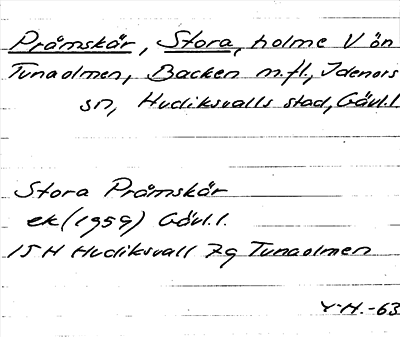 Pråmskär, Stora, holme V ön
Tunaolmen, Backen m.fl., Idenors
sn, Hudiksvalls stad, Gävl.l.
Stora Pråmskär
ek (1959) Gävl.l.
15H Hudiksvall 7g Tunaolmen
Y.H.-63